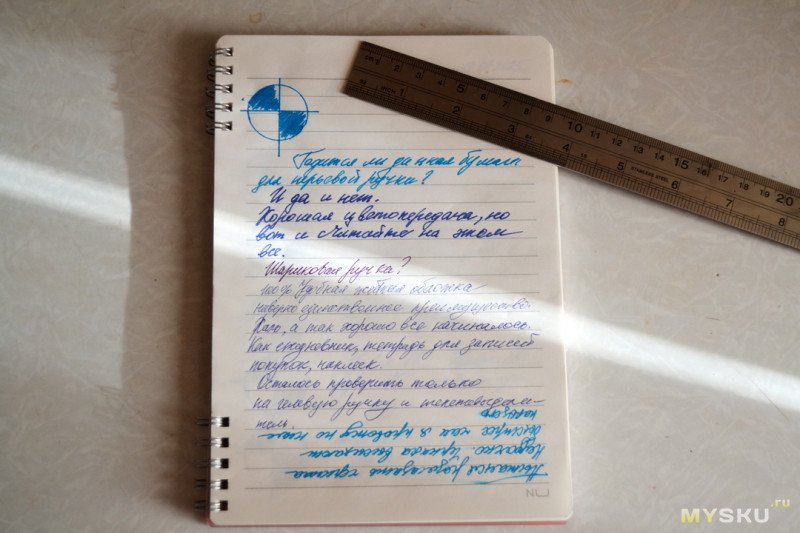 Годится ли данная бумага
для перьевой ручки?
И да и нет.
Хорошая цветопередача, но
вот и считайте на этом
все.
Шариковая ручка?
Удобная жёсткая обложка
наверно единственное преимущество.
а так хорошо все начиналось.
Как ежедневник, тетрадь для записей
покупок, наклеек.
Осталось проверить только
на гелевую ручку и текстовыдели-
тель.
быстрее чем я провожу по ним
Чернила высыхают
NU
cm 1 2 3 4 5 6 7 8 9 10 11 12 13 14 15 16 17 18 19 20
INCH 1 2 3 4 5 6 7 8
STAINLESS STEEL
MYSKU.ru